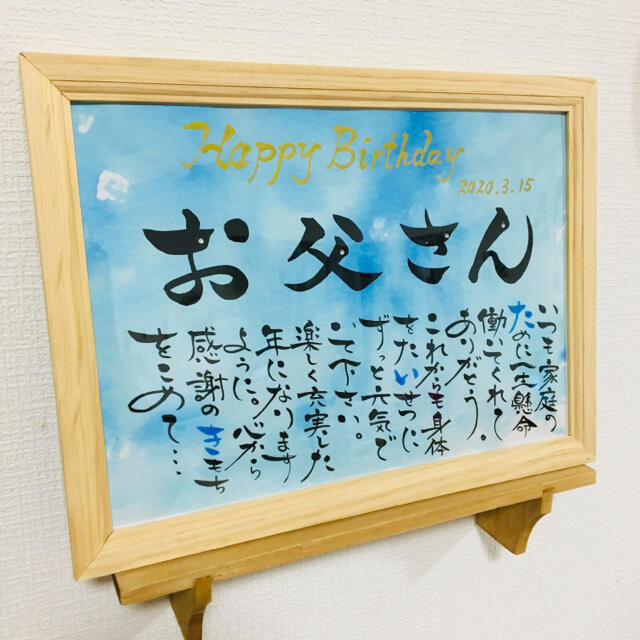 Happy Birthday
2020.3.15
お父さん
いつも家庭の
ために一生懸命
働いてくれて
ありがとう。
これからも身体
をたいせつに
ずっと元気で
いて下さい。
楽しく充実した
年になります
ように。心から
感謝のきもち
をこめて…